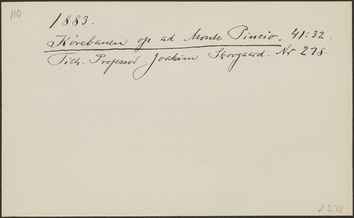 110
1883.
Kørebanen op ad Monte Pincio. 41:32.
Tilh. Professor Joakim Skovgaard. Nr 278